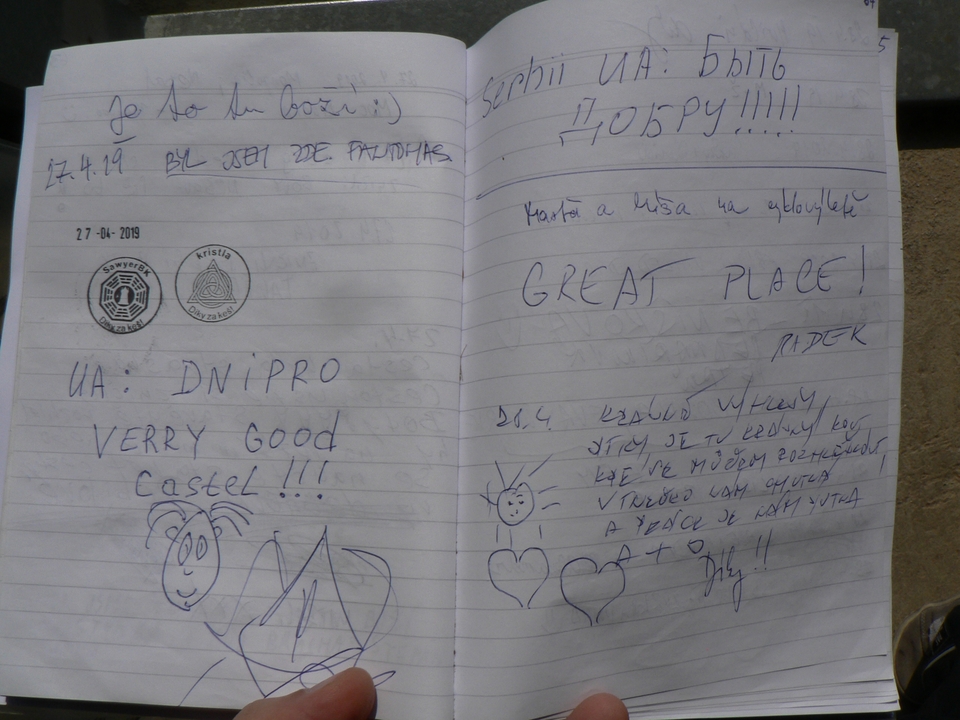 Je to tu boží :)
27.4.19 BYL JSEM ZDE. FANTOMAS.
27-04-2019
SawyerBK
Díky za keš!
Kristla
Díky za keš!
UA: DNiPRO
VERRY GOOd
CasteL!!!
5
Serbii UA: БЫТЬ
ДОБРУ!!!!!
a Míša na cyklovýletě
GREAT PLACE!
RADEK
28.4. KRÁSNÉ VÝHLEDY,
JE TU KRÁSNÝ
KDE SE MŮŽEM
NÁM CHUTNÁ
A JE NÁM
A + O
Díky!!